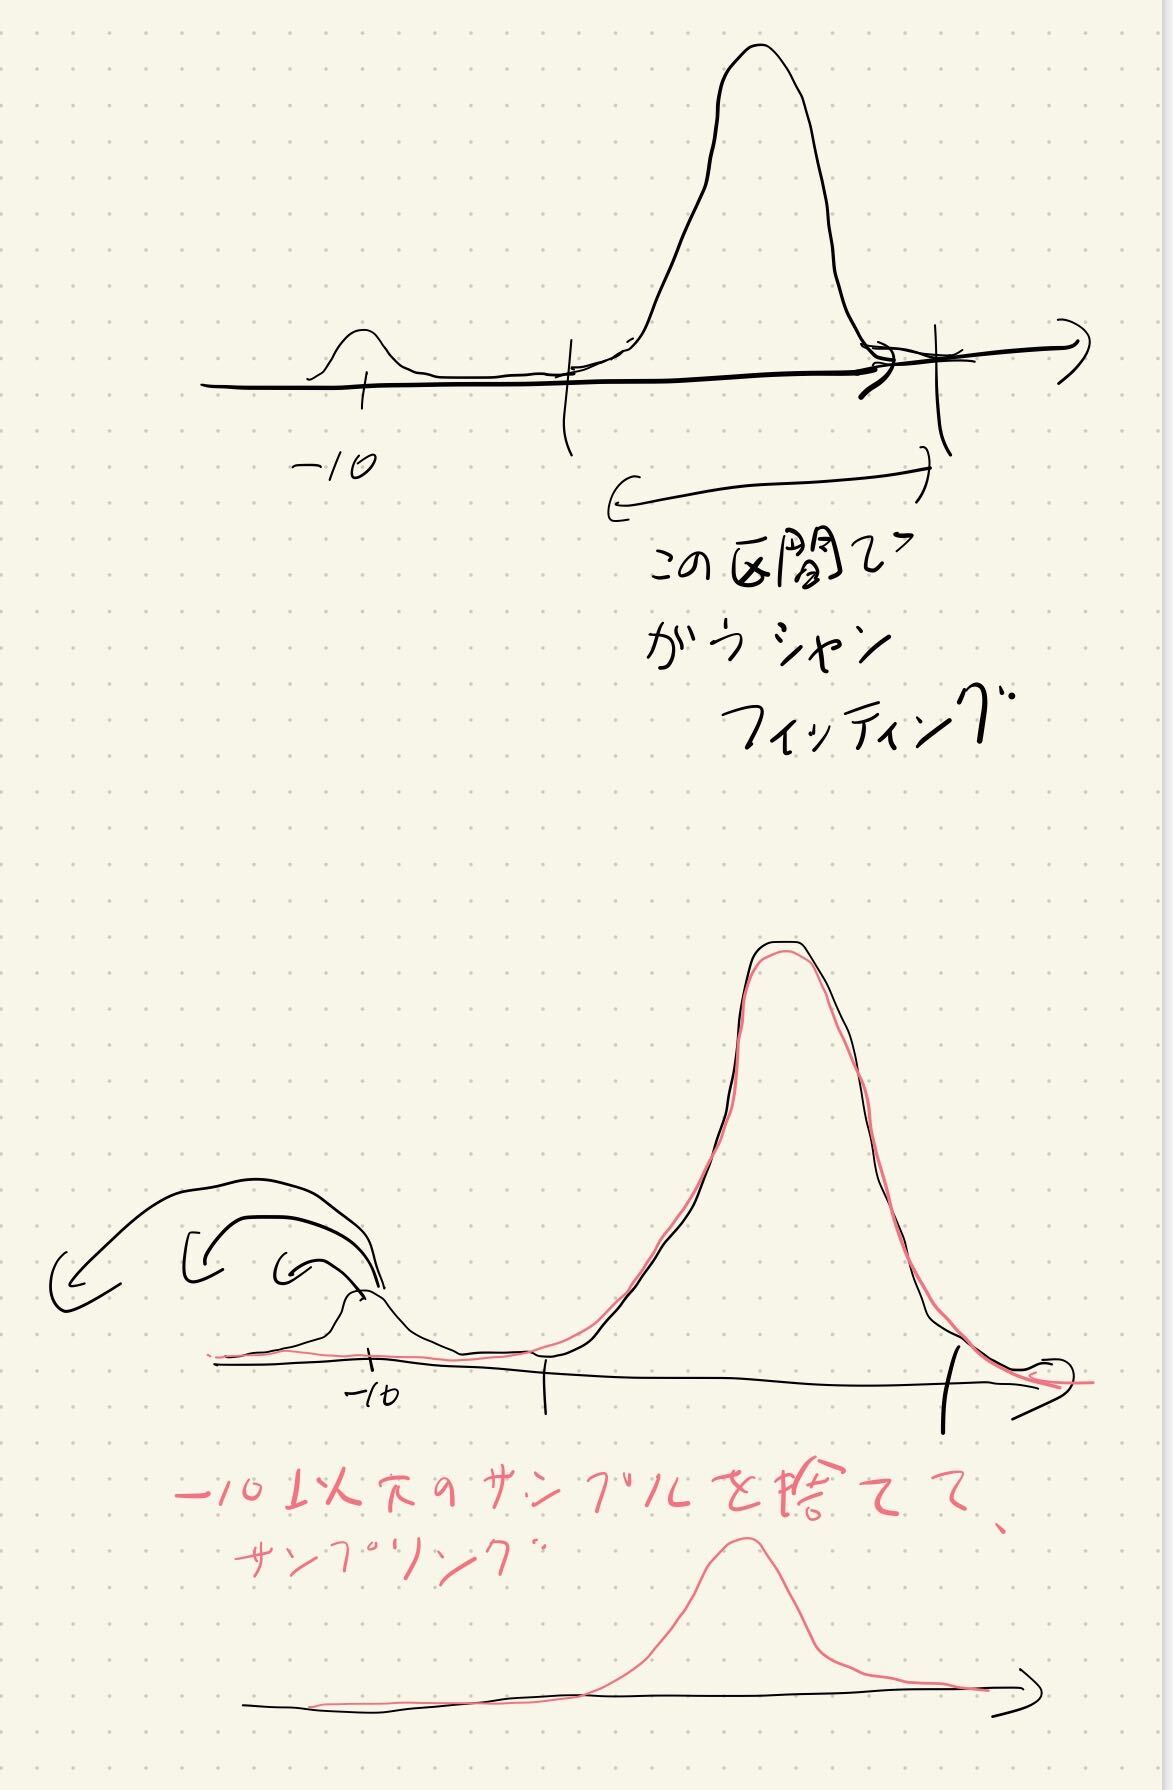 -10
この区間で
がうシャン
フィッティング
-10
-10以下のサンプルを捨てて、
サンプリング